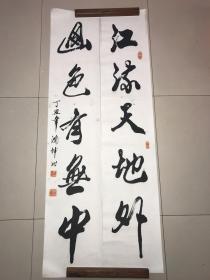 江流天地外
山色有無中
丁亥年